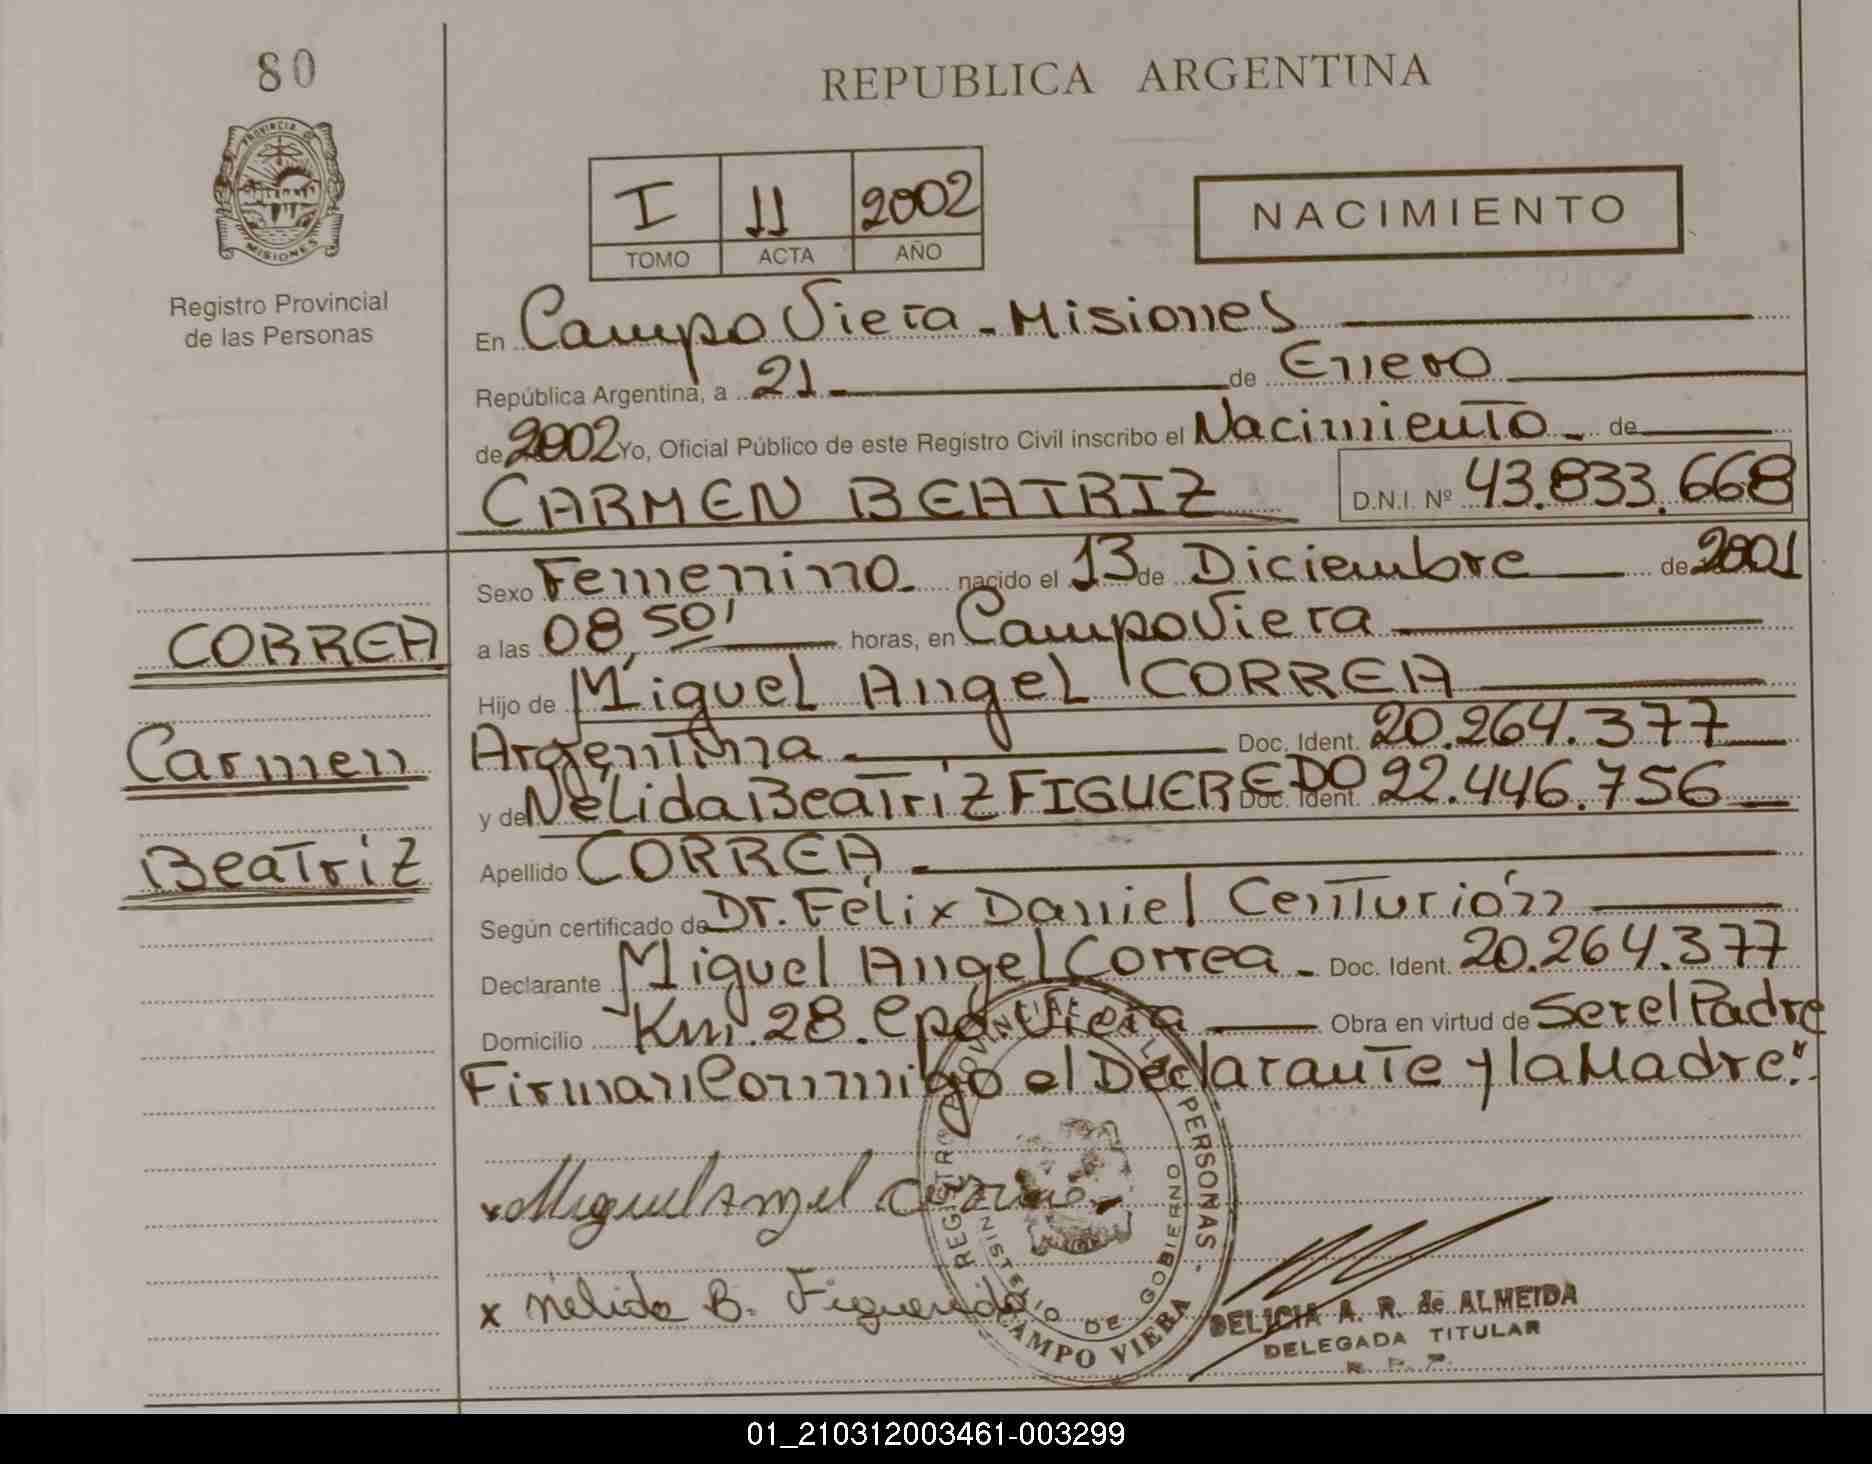 80
REPUBLICA ARGENTINA
PROVINCIA DE MISIONES
Registro Provincial
de las Personas
I 11 2002
TOMO ACTA AÑO
NACIMIENTO
En Campo Viera - Misiones
República Argentina, a 21 de Enero
de 2002 Yo, Oficial Público de este Registro Civil inscribo el Nacimiento de
CARMEN BEATRIZ D.N.I. Nº 43.833.668
CORREA
Carmen
Beatriz
Sexo Femenino nacido el 13 de Diciembre de 2001
a las 08,50' horas, en Campo Viera
Hijo de Miguel Angel CORREA
Argentina Doc. Ident. 20.264.377
y de Nélida Beatriz FIGUEREDO Doc. Ident. 22.446.756
Apellido CORREA
Según certificado de Dr. Félix Daniel Centurión
Declarante Miguel Angel Correa Doc. Ident. 20.264.377
Domicilio Km. 28. Cpo Viera Obra en virtud de Ser el Padre
Firman Conmigo el Declarante y la Madre."
x Miguel Angel
x Nelida B. Figueredo
REGISTRO PROVINCIAL DE LAS PERSONAS
MINISTERIO DE GOBIERNO
CAMPO VIERA
DELICIA A. R. de ALMEIDA
DELEGADA TITULAR
01_210312003461-003299